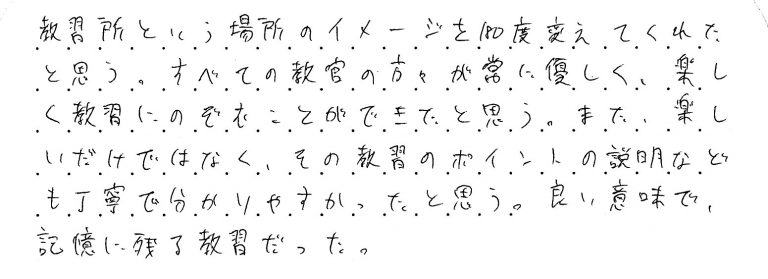 教習所という場所のイメージを180度変えてくれた
と思う。すべての教官の方々が常に優しく、楽し
く教習にのぞむことができたと思う。また、楽し
いだけではなく、その教習のポイントの説明など
も丁寧で分かりやすかったと思う。良い意味で、
記憶に残る教習だった。